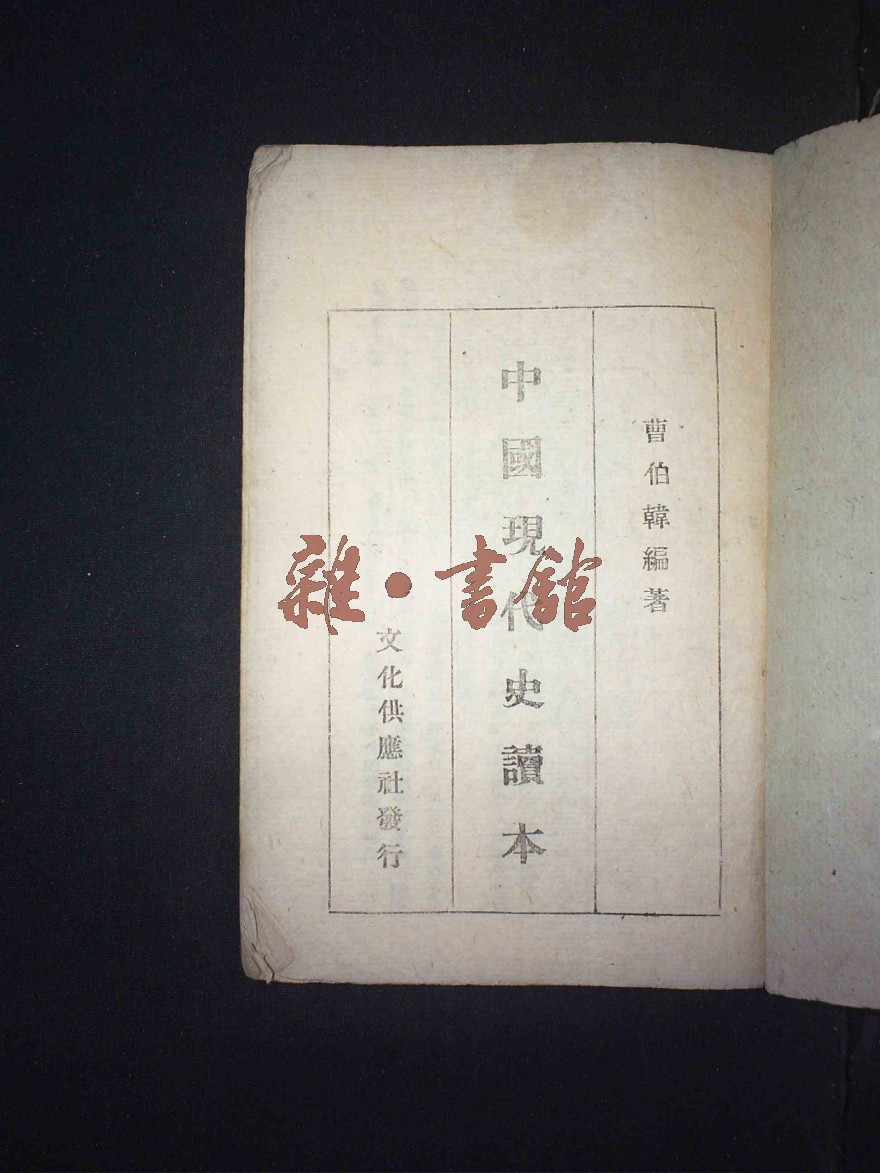 曹伯韓編著
中國現代史讀本
文化供應社發行
雜·書館